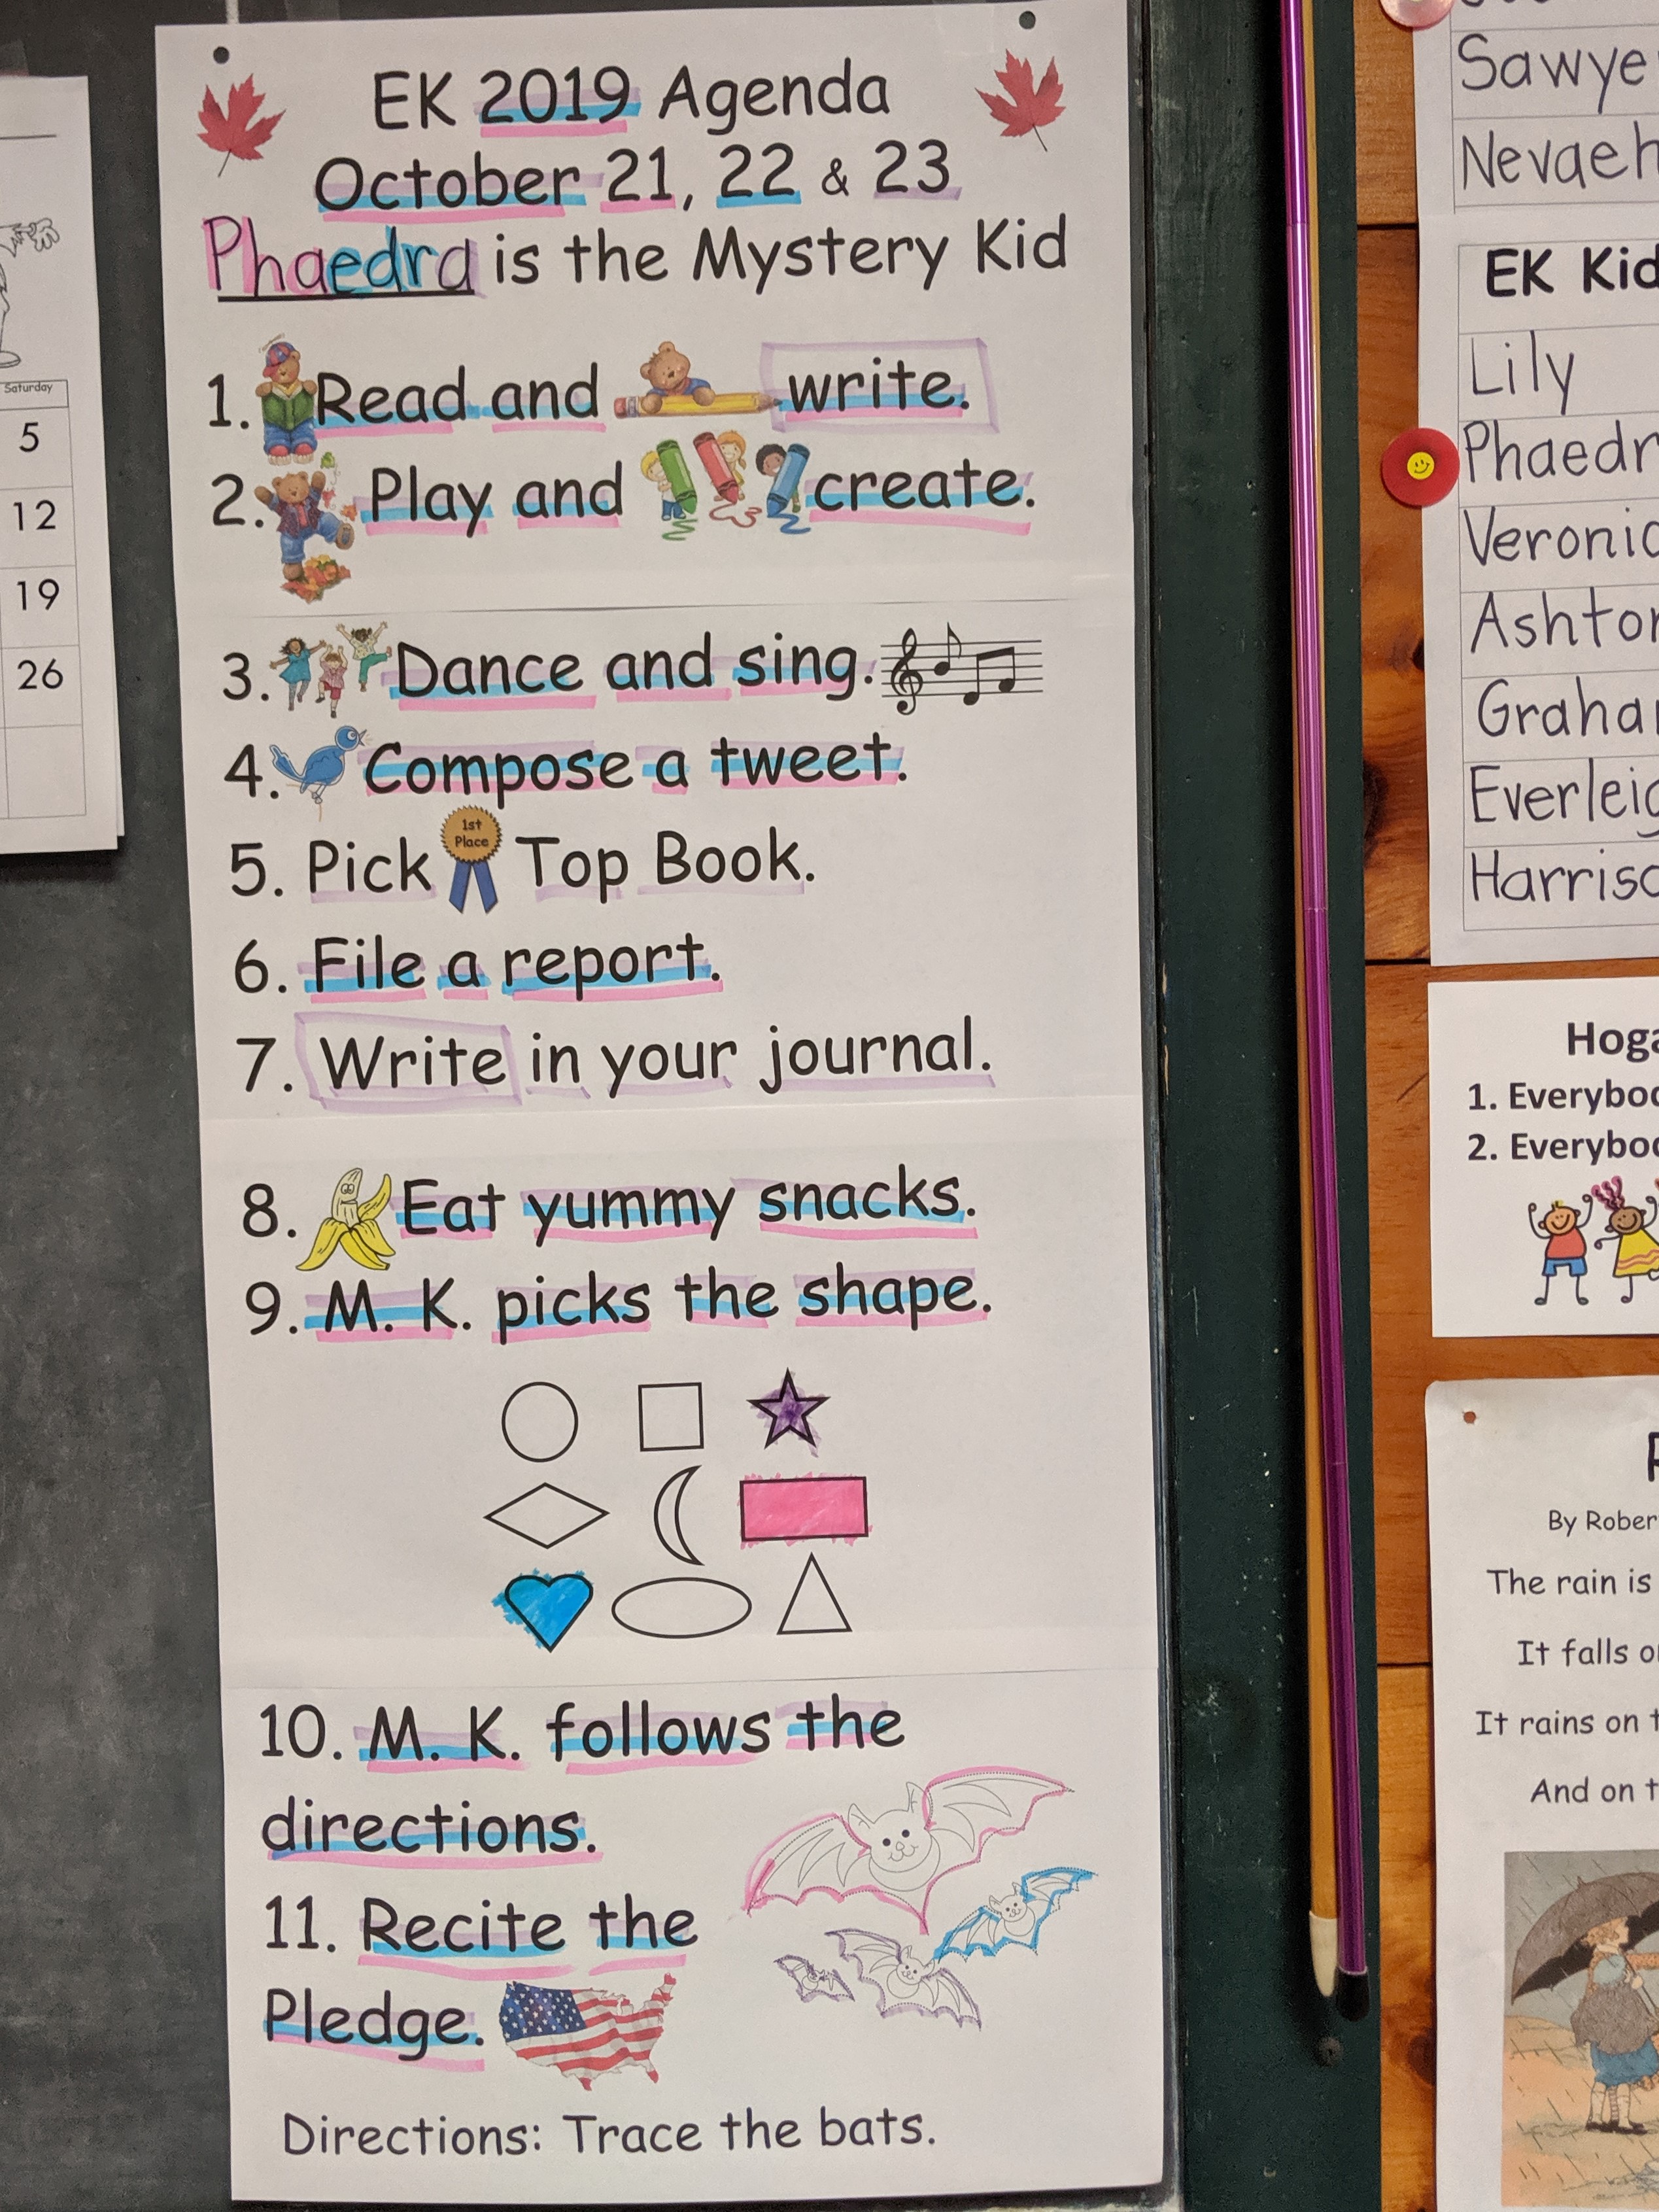 EK 2019 Agenda
October 21, 22 & 23
Phaedra is the Mystery Kid
1. Read and write.
2. Play and create.
3. Dance and sing.
4. Compose a tweet.
1st
Place
5. Pick Top Book.
6. File a report.
7. Write in your journal.
8. Eat yummy snacks.
9. M. K. picks the shape.
10. M. K. follows the
directions.
11. Recite the
Pledge.
Directions: Trace the bats.
Saturday
5
12
19
26
Nevaeh
EK
Lily
1.
2.
By
The rain is
It falls
It rains on
And on